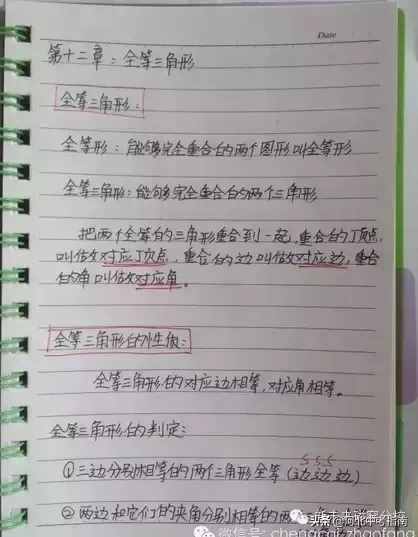 Date
第十二章：全等三角形
全等三角形：
全等形：能够完全重合的两个图形叫全等形
全等三角形：能够完全重合的两个三角形
把两个全等的三角形重合到一起，重合的顶点
叫做对应顶点，重合的边叫做对应边，重合
的角叫做对应角。
全等三角形的性质：
全等三角形的对应边相等，对应角相等。
全等三角形的判定：
SSS
①三边分别相等的两个三角形全等（边边边）
②两边和它们的夹角分别相等的两
头条@河北中考指南